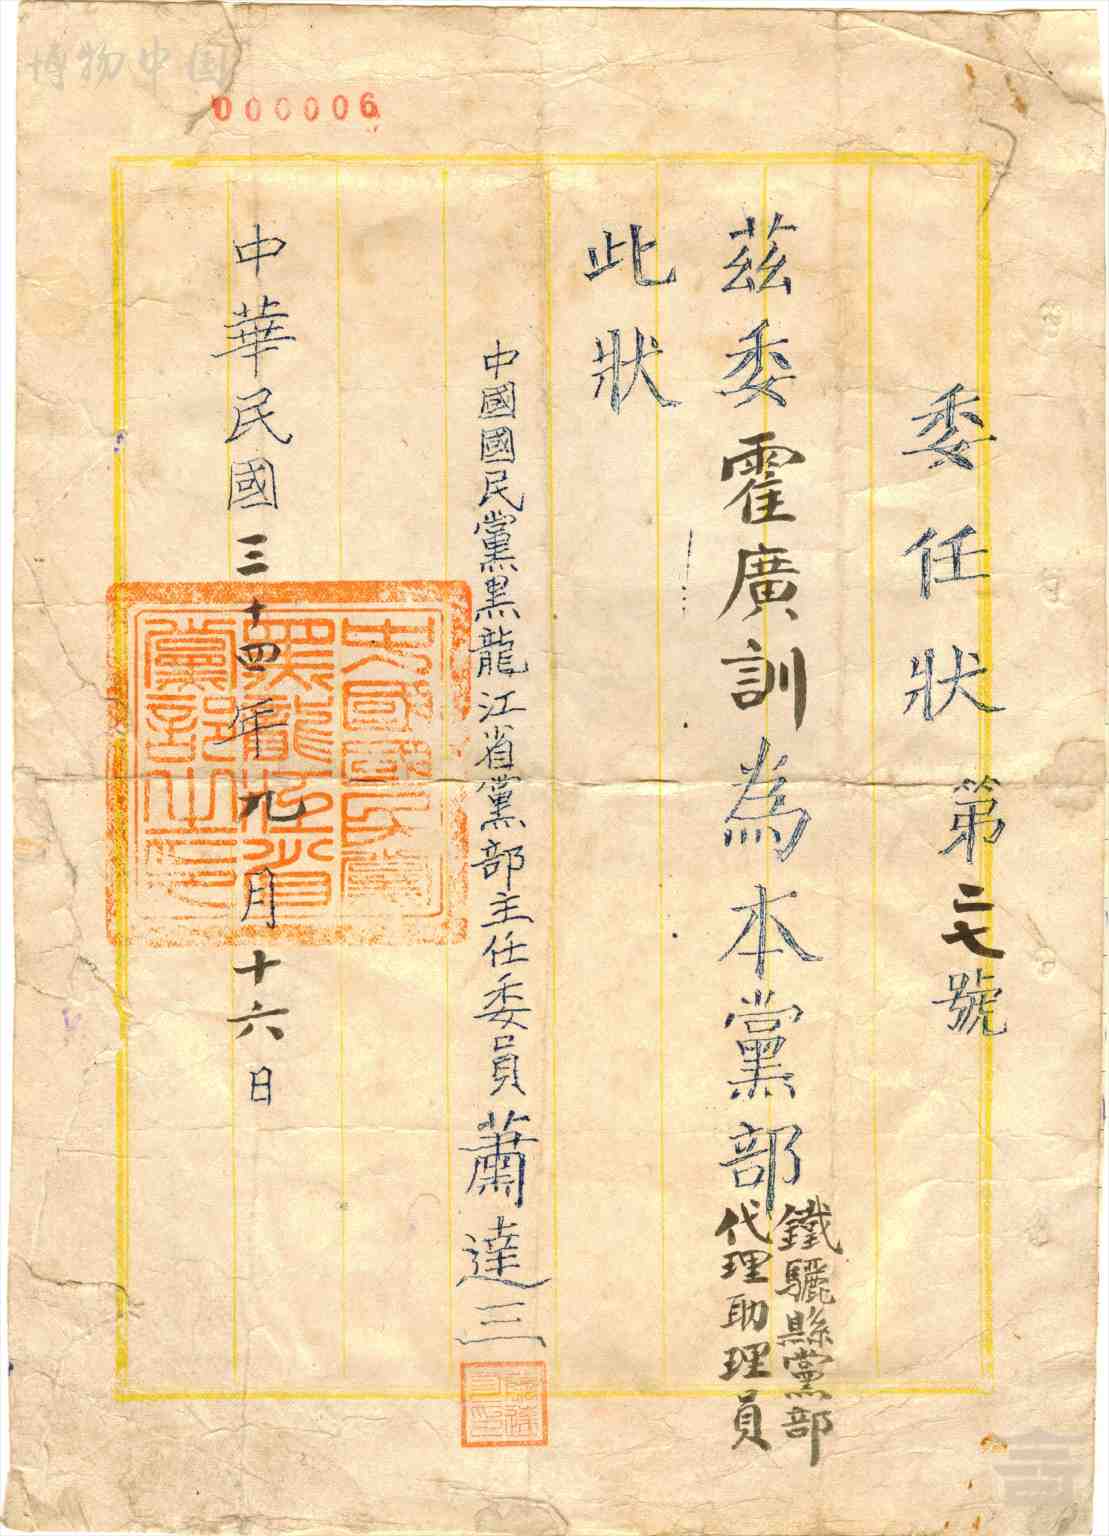 博物中国
000006
委任狀 第二七號
茲委霍廣訓為本黨部鐵驪縣黨部
代理助理員
此狀
中國國民黨黑龍江省黨部主任委員蕭達三
中華民國三十四年九月十六日
中國國民黨
黑龍江省
黨部之印